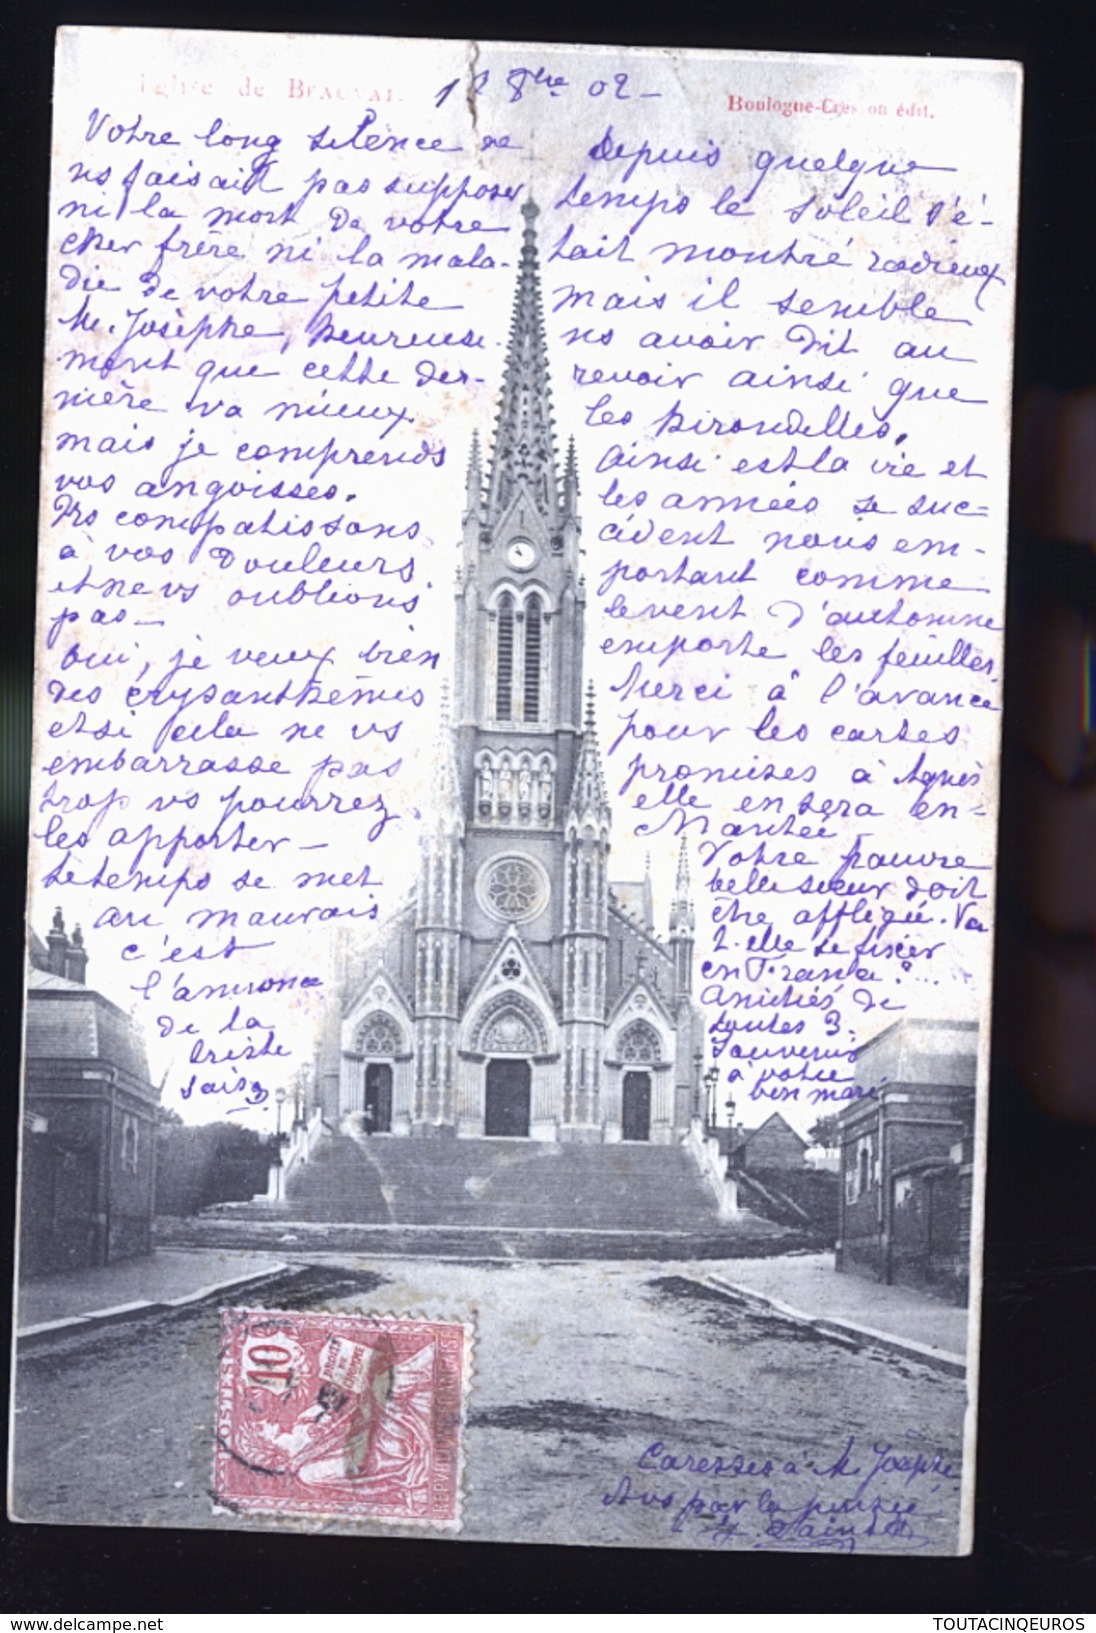 Eglise de BEAUVAL
Boulogne-Cresson édit.
8bre 02 -
Votre long silence ne
ns faisait pas supposer
ni la mort de votre
cher frère ni la mala-
die de votre petite
M. Josèphe, heureuse-
ment que cette der-
nière va mieux
mais je comprends
vos angoisses.
Ns compatissons
à vos douleurs
et ne vs oublions
pas -
Oui, je veux bien
des crysanthèmes
et si cela ne vs
embarrasse pas
trop vs pourrez
les apporter -
le temps se met
au mauvais
c'est
l'annonce
de la
triste
saison
Depuis quelque
temps le soleil s'é-
tait montré radieux
mais il semble
ns avoir dit au
revoir ainsi que
les hirondelles.
Ainsi est la vie et
les années se suc-
cèdent nous em-
portant comme
le vent d'automne
emporte les feuilles.
Merci à l'avance
pour les cartes
promises à Agnès
elle en sera en-
chantée -
Votre pauvre
belle soeur doit
être affligée. Va
t-elle se fixer
en France ?...
Amitiés de
toutes 3.
Souvenirs
à votre
bon mari
Caresses à M Josèphe
à vs par la pensée
POSTES
10
DROITS
DE
L'HOMME
REPUBLIQUE FRANÇAISE
TOUTACINQEUROS